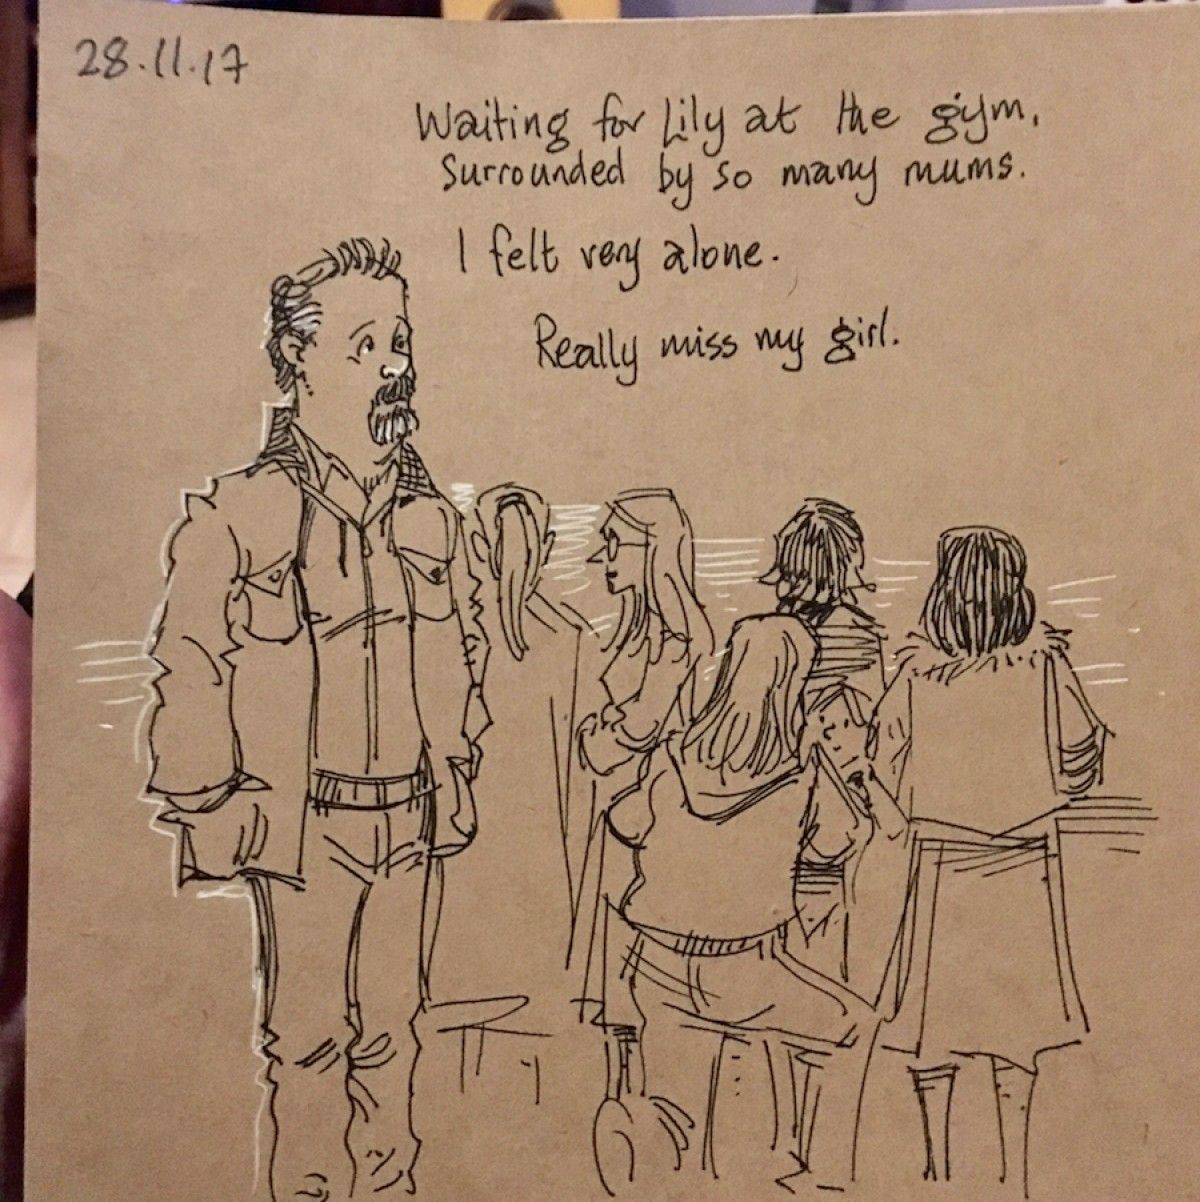 28.11.17
Waiting for Lily at the gym,
Surrounded by so many mums.
I felt very alone.
Really miss my girl.